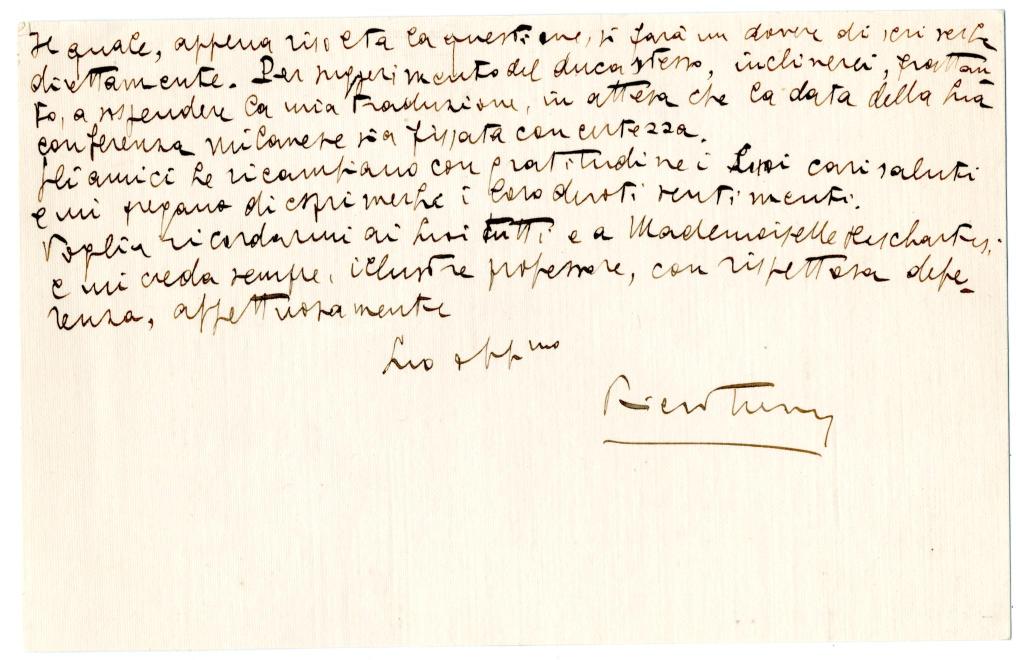 Il quale, appena risolta la questione, si farà un dovere di scriverLe
direttamente. Per suggerimento del duca stesso, inclinerei, frattan-
to, a sospendere la mia traduzione, in attesa che la data della Sua
conferenza milanese sia fissata con certezza.
Gli amici Le ricambiano con gratitudine i Suoi cari saluti
e mi pregano di esprimerLe i loro devoti sentimenti.
Voglia ricordarmi ai Suoi tutti e a Mademoiselle
e mi creda sempre, illustre professore, con rispettosa defe-
renza, affettuosamente
Suo aff.mo
Piero